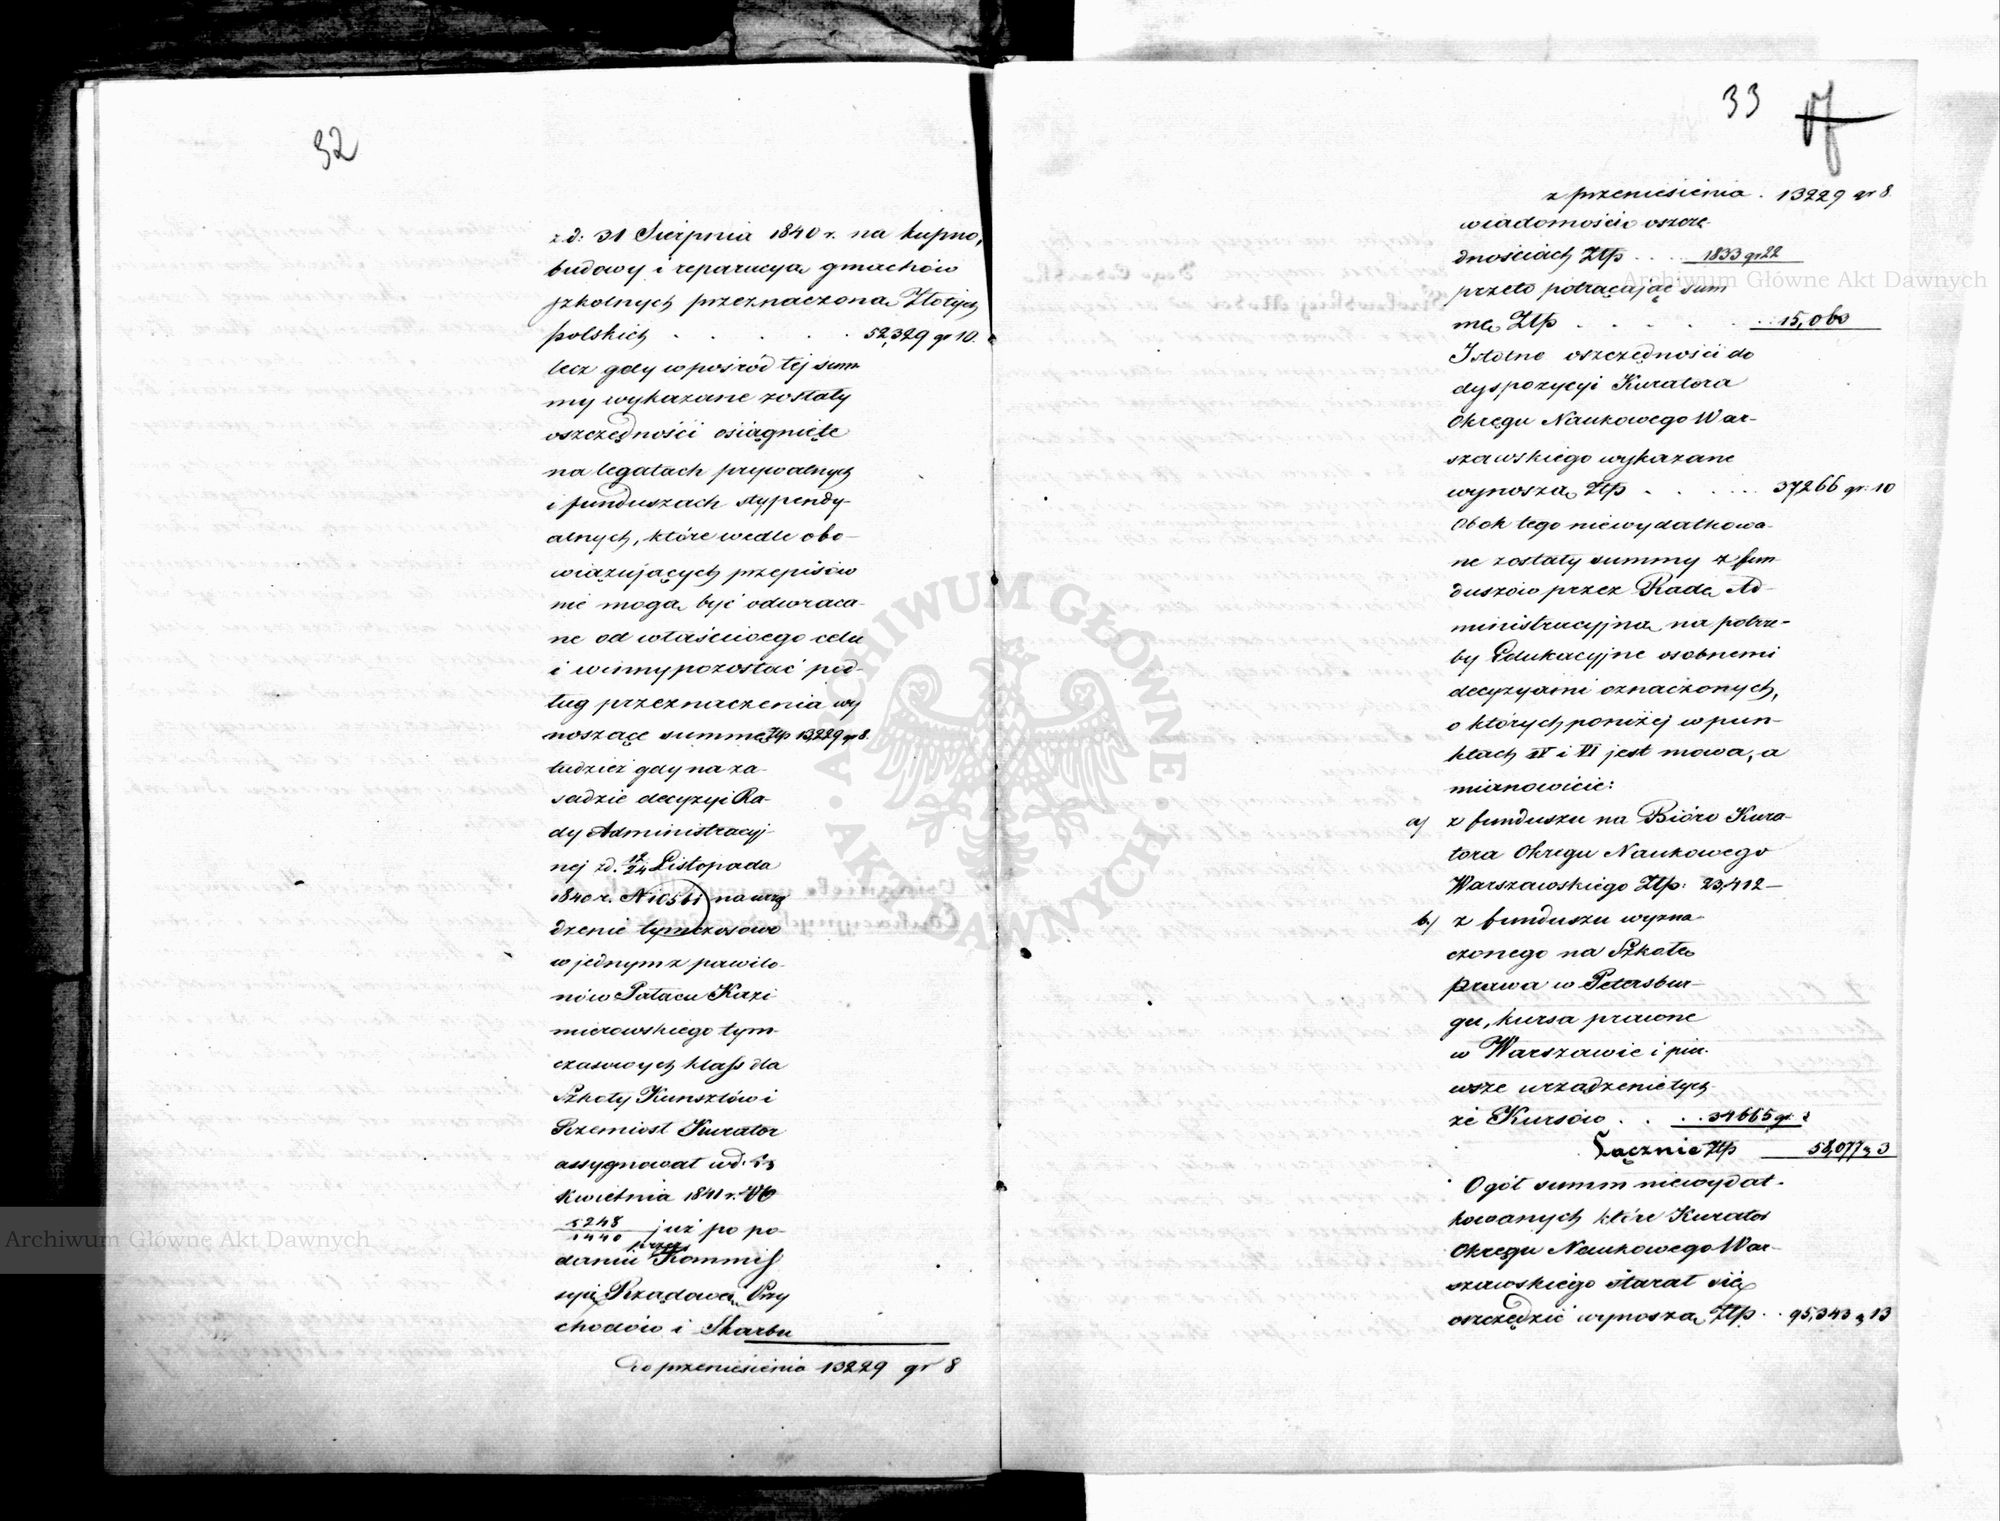 32
z d: 31 Sierpnia 1840 r. na kupno,
budowy i reparacya gmachów
szkolnych przeznaczona Złotych
polskich . . . . . 52,329 gr 10.
lecz gdy wpośród tej sum
my wykazane zostały
oszczędności osiągnięte
na legatach prywatnych
i funduszach stypendy-
alnych, które wedle obo-
wiązujących przepisów
nie mogą być odwraca-
ne od właściwego celu
i winny pozostać pod-
ług przeznaczenia wy
noszące summę Złp 13,229 gr 8.
tudzież gdy na za-
sadzie decyzyi Ra-
dy Administracyj-
nej z d. 12/24 Listopada
1840 r. N 10561 na urzą
dzenie tymczasowo
w jednym z pawilo-
nów Pałacu Kazi
mierowskiego tym-
czasowych klass dla
Szkoły Kunsztów i
Rzemiosł Kurator
assygnował w d.
Kwietnia 1841 r. No
5248/1440 już po po-
przez
daniu Kommis
syię Rządową Przy
chodów i Skarbu
Do przeniesienia 13229 gr 8
33
z przeniesienia . 13229 gr 8.
wiadomości o oszczę
dnościach Złp . . . 1833 gr 22
przeto potrącając sum
mę Złp . . . . . 15,060
Istotne oszczędności do
dyspozycyi Kuratora
Okręgu Naukowego War-
szawskiego wykazane
wynoszą Złp . . . . . 37266 gr. 10
Obok tego niewydatkowa-
ne zostały summy z fun
duszów przez Radę Ad-
ministracyjną na potrze-
by Edukacyjne osobnemi
decyzyami oznaczonych,
o których poniżej w pun-
ktach IV i VI jest mowa, a
mianowicie:
a) z funduszu na Bióro Kura-
tora Okręgu Naukowego
Warszawskiego Złp: 23,412 —
b) z funduszu wyzna-
czonego na Szkołę
prawa w Petersbur-
gu, kursa prawne
w Warszawie i pier-
wsze urządzenie tych
że Kursów . . . . 34665 gr.
Łącznie Złp 58,077 „ 3
Ogół summ niewydat-
kowanych które Kurator
Okręgu Naukowego War-
szawskiego starał się
oszczędzić wynoszą Złp . . 95,343 „ 13
Archiwum Główne Akt Dawnych
Archiwum Główne Akt Dawnych
ARCHIWUM GŁÓWNE · AKT DAWNYCH ·